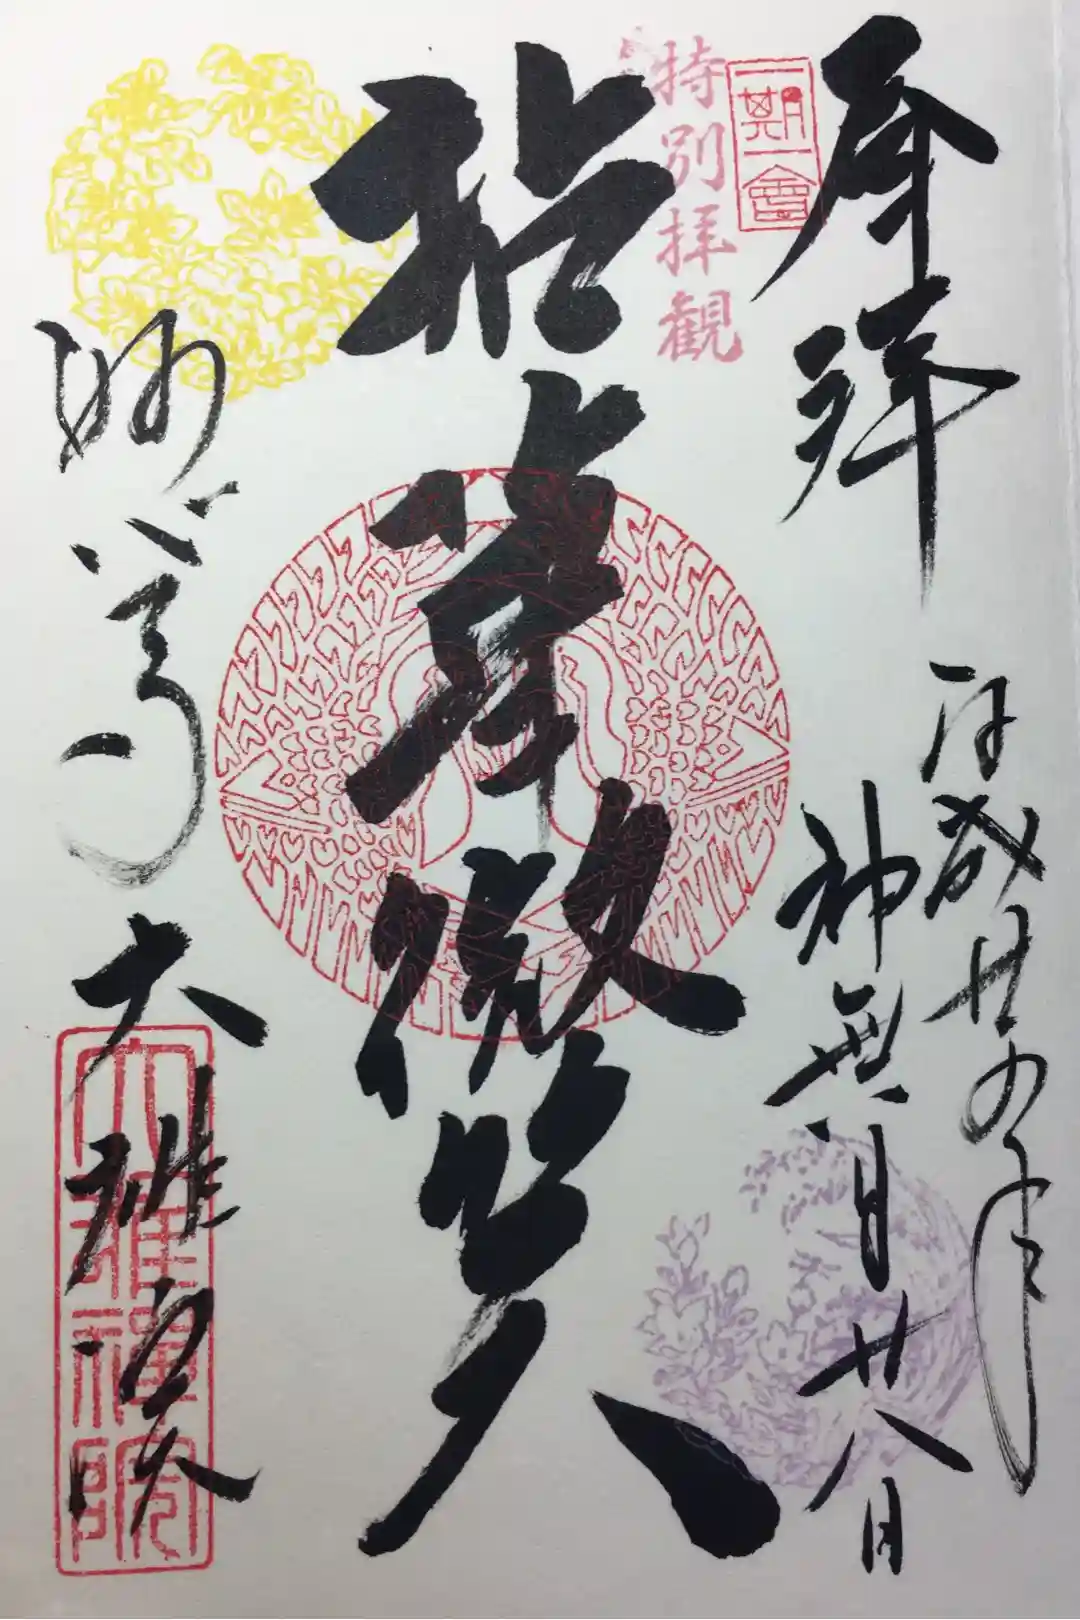 奉拝
平成廿九年
神無月廿八日
一期一會
特別拝観
拈華微笑
妙心寺
大雄院
大雄禅院